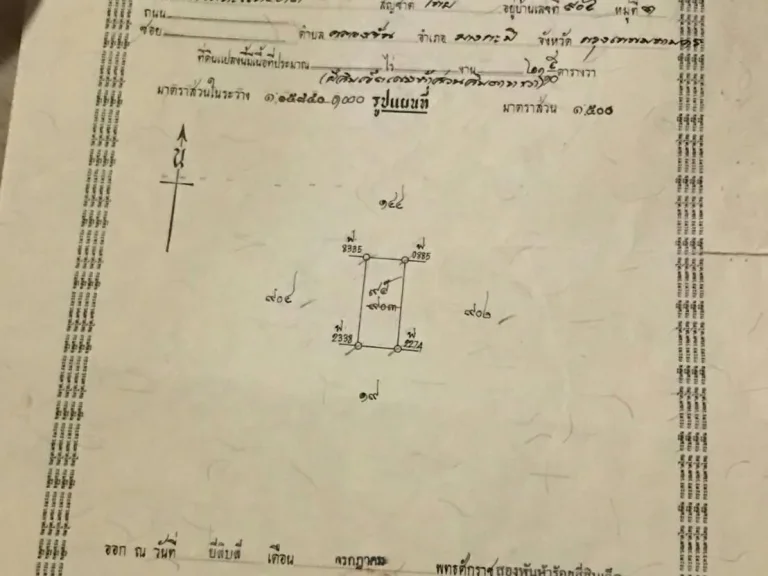 สัญชาติ ไทย อยู่บ้านเลขที่ ๙๐๕ หมู่ที่ ๑
ถนน
ซอย ตำบล คลองจั่น อำเภอ บางกะปิ จังหวัด กรุงเทพมหานคร
ที่ดินแปลงนี้มีเนื้อที่ประมาณ ไร่ งาน ตารางวา
มาตราส่วนในระวาง ๑:๑๕๘๔๐-๑,๐๐๐ รูปแผนที่ มาตราส่วน ๑:๕๐๐
น
๑๔๔
พ พ
8335 0885
๙๐๔ ๙๕ ๙๐๒
๙๐๓
พ พ
2338 2274
๑๙
ออก ณ วันที่ ยี่สิบสี่ เดือน กรกฎาคม พุทธศักราช สองพันห้าร้อยสี่สิบ